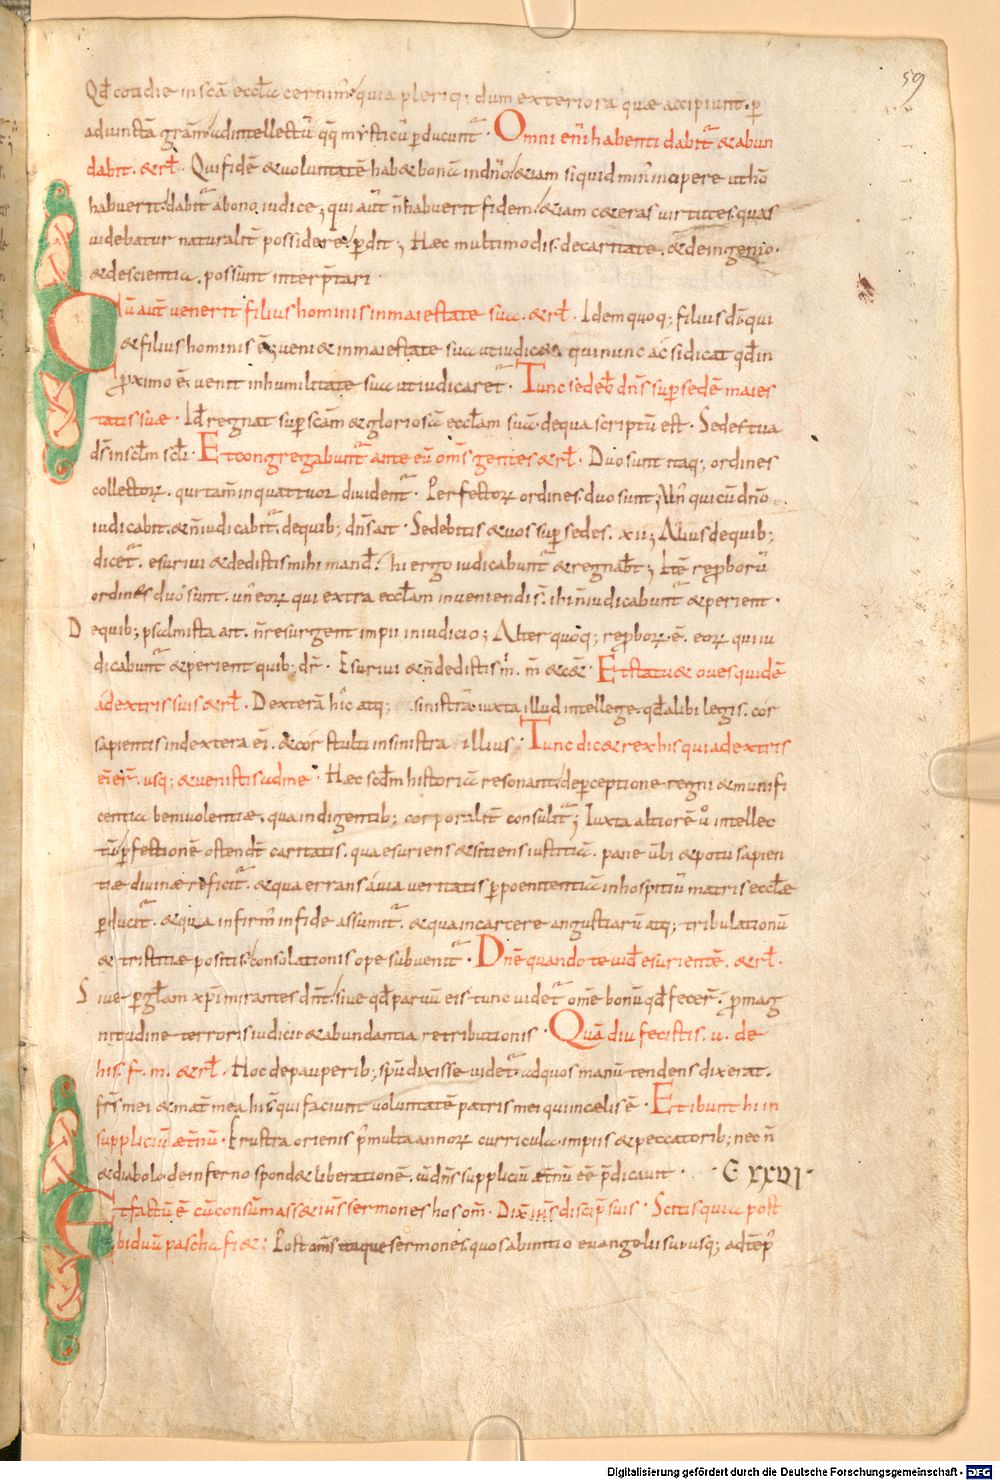 59
Qđ cotidie in scā eccƚa cernim; quia pleriq; dum exteriora quæ accipiunt. ꝑ
adiunctā gram̄ ad intellectū qq; mysticū ꝑducunt᷑. Omni enī habenti dabit᷑ & abun
dabit. & rƚ. Qui fidē & voluntatē hab& bonā in dnō. &iam si quid min᷑ in opere ut homō
habuerit. dabit᷑ a bono iudice; qui aūt n̄ habuerit fidem. &iam c&eras virtutes quas
videbatur naturalit᷑ possidere. ꝑdit; Hæc multimodis. de caritate. & de ingenio.
& de scientia. possunt interp̄tari.
Cū aūt venerit filius hominis in maiestate sua. & rƚ. Idem quoq; filius dī qui
& filius hominis ē. veni& in maiestate sua ut iudic&. qui nunc ac si dicat qđ in
ꝓximo ē. venit in humilitate sua ut iudicaret᷑. Tunc sedeb̄ dn̄s sup̄ sedē maies
tatis suæ. Id̄ regnat sup̄ scām & gloriosā eccƚam suā. de qua scriptū est. Sedes tua
ds̄ in scƚm scƚi. Et congregabunt᷑ ante eū om̄s gentes & rƚ. Duo sunt itaq; ordines
collectoꝝ. qui tam̄ in quattuor divident᷑. Perfectoꝝ ordines duo sunt; Un᷑ qui cū dnō
iudicabit. & n̄ iudicabit᷑. de quib; dn̄s ait. Sedebitis & vos sup̄ sedes. xii; Alius de quib;
dicet᷑. esurivi & dedistis mihi mand̄. hi ergo iudicabunt᷑ & regnab̄t; Itē reproborū
ordines duo sunt. un᷑ eoꝝ qui extra eccƚam inveniendi s̄. ihi n̄ iudicabunt᷑ & perient.
De quib; psalmista ait. n̄ resurgent impii in iudicio; Alter quoq; reproboꝝ. ē. eoꝝ qui iu
dicabunt᷑ & perient quib; dr̄. Esurivi & n̄ dedistis m̄. m̄ & c&. Et statu& oves quidē
a dextris suis & rƚ. Dexterā hic atq; sinistrā iuxta illud intellege. qđ alibi legis. cor
sapientis in dextera ei᷑. & cor stulti in sinistra illius; Tunc dic& rex his qui a dextris
ei᷑ er̄. usq; & venistis ad me. Hæc scđm historiā resonant. de ꝑceptione regni & munifi
centia benivolentiæ. qua indigentib; corporalit᷑ consulit᷑; Iuxta altiorē v̊ intellec
tū ꝑfectionē ostend̄t caritatis. qua esuriens & sitiens iustitiā. pane v̄bi & potu sapien
tiæ divinæ reficit᷑. & qua errans a via veritatis ꝑ poenitentiā in hospitiū matris eccƚæ
ꝑducit᷑. & qua infirm᷑ in fide assumit᷑. & qua in carcere angustiarū atq; tribulationū
& tristitiæ positis consolationis ope subvenit᷑. Dn̄e quando te vid̄ esurientē. & rƚ.
Sive ꝑ gƚam xp̄i mirantes dn̄t. sive qđ parvū eis tunc videt᷑ om̄e bonū qđ fecer̄. ꝓ mag
nitudine terroris iudicii & abundantia retributionis. Quā diu fecistis. u. de
his. f. m. & rƚ. Hoc de pauperib; spū dixisse videt᷑ ad quos manū tendens dixerat.
frs̄ mei & mat̄ mea hi s̄ qui faciunt voluntatē patris mei qui in celis ē. Et ibunt hi in
suppliciū æt̄nū. Frustra orienis p᷑ multa annoꝝ curricula. impiis & peccatorib; nec n̄
& diabolo de inferno spond& liberationē. cū dn̄s suppliciū æt̄nū eē p̄dicavit. C XXVI.
Et factū ē cū consummass& ih̄s sermones hos om̄. Dix̄ ih̄s discip̄ suis. Scitis quia post
biduū pascha fi&; Post om̄s itaque sermones quos ab initio evangelii sui usq; ad tēp᷑
Digitalisierung gefördert durch die Deutsche Forschungsgemeinschaft - DFG